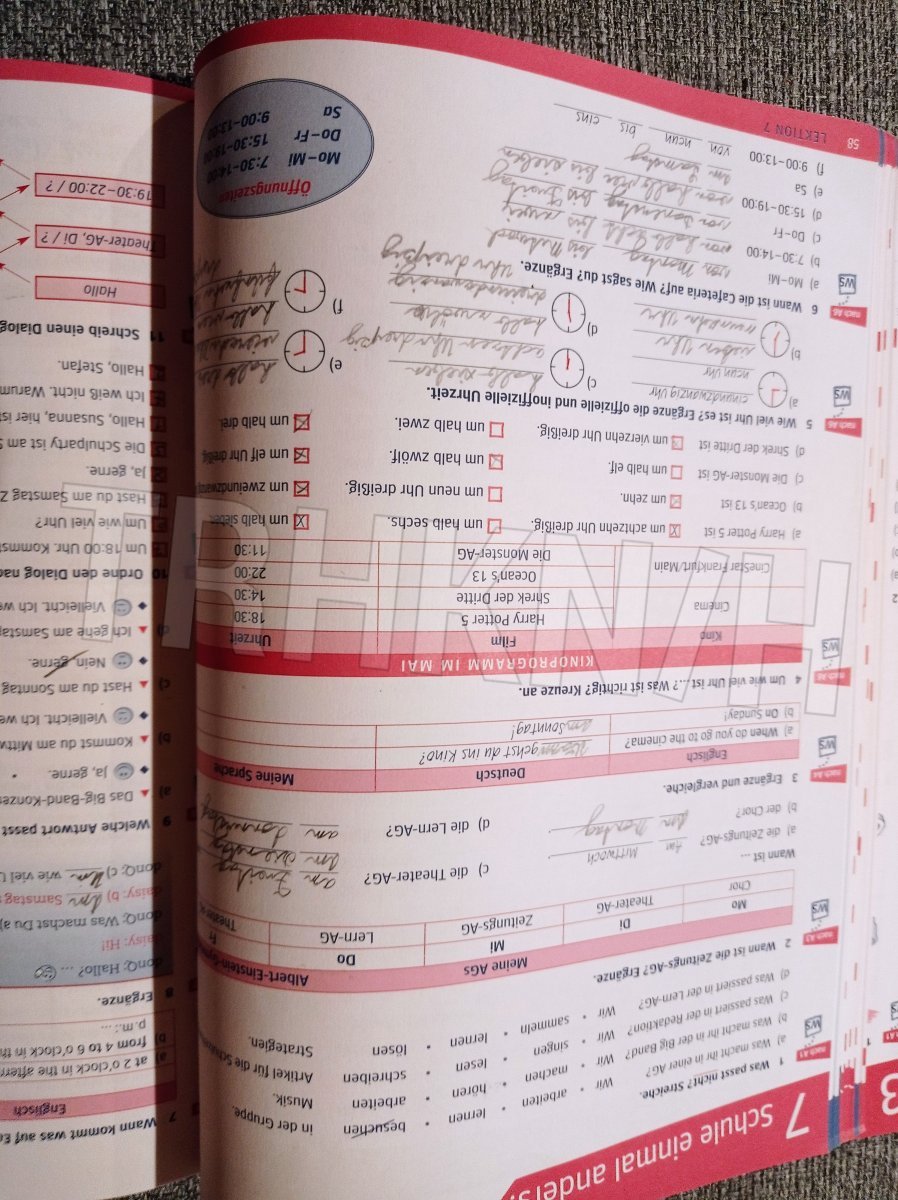 7 Schule einmal anders
nach A1
1 Was passt nicht? Streiche.
a) Was macht ihr in einer AG? Wir • arbeiten • lernen • besuchen in der Gruppe.
b) Was macht ihr in der Big Band? Wir • machen • hören • arbeiten Musik.
c) Was passiert in der Redaktion? Wir • singen • lesen • schreiben Artikel für die
d) Was passiert in der Lern-AG? Wir • sammeln • lernen • lösen Strategien.
nach A3
WS
2 Wann ist die Zeitungs-AG? Ergänze.
Meine AGs Albert-Einstein-
Mo Di Mi Do Fr
Chor Theater-AG Zeitungs-AG Lern-AG
Wann ist ...
a) die Zeitungs-AG? Am Mittwoch.
b) der Chor? Am Montag.
c) die Theater-AG?
d) die Lern-AG? am
nach A4
WS
3 Ergänze und vergleiche.
Englisch Deutsch Meine Sprache
a) When do you go to the cinema? gehst du ins Kino?
b) On Sunday! am Sonntag!
WS
4 Um wie viel Uhr ist ...? Was ist richtig? Kreuze an.
KINOPROGRAMM IM MAI
Kino Film Uhrzeit
Cinema Harry Potter 5 18:30
Shrek der Dritte 14:30
CineStar Frankfurt/Main Ocean's 13 22:00
Die Monster-AG 11:30
a) Harry Potter 5 ist um achtzehn Uhr dreißig. um halb sechs. um halb sieben
b) Ocean's 13 ist um zehn. um neun Uhr dreißig. um zweiundzwanzig
c) Die Monster-AG ist um halb elf. um halb zwölf. um elf Uhr dreißig
d) Shrek der Dritte ist um vierzehn Uhr dreißig. um halb zwei. um halb drei.
nach A6
WS
5 Wie viel Uhr ist es? Ergänze die offizielle und inoffizielle Uhrzeit.
a) einundzwanzig Uhr
neun Uhr
b) sieben Uhr
neunzehn Uhr
c) halb sieben
achtzehn Uhr dreißig
d) halb zwölf
Uhr dreißig
e) halb
f) halb
nach A6
WS
6 Wann ist die Cafeteria auf? Wie sagst du? Ergänze.
a) Mo–Mi von Montag bis Mittwoch
b) 7:30–14:00 von halb acht bis zwei
c) Do–Fr von Donnerstag bis Freitag
d) 15:30–19:00 von halb vier bis sieben
e) Sa am Samstag
f) 9:00–13:00 von neun bis eins
Öffnungszeiten
Mo–Mi 7:30–14:00
Do–Fr 15:30–19:00
Sa 9:00–13:00
58 LEKTION 7
7 Wann kommt was auf
Englisch
a) at 2 o'clock in the
b) from 4 to 6 o'clock in
p.m.: ...
8 Ergänze.
donQ: Hallo? ...
daisy: Hi!
donQ: Was machst Du a)
daisy: b) Am Samstag
donQ: c) Um wie viel
9 Welche Antwort passt
a) ▲ Das Big-Band-
◆ Ja, gerne.
b) ▲ Kommst du am
◆ Vielleicht. Ich
c) ▲ Hast du am Sonntag
◆ Nein, gerne.
d) ▲ Ich gehe am
◆ Vielleicht. Ich
10 Ordne den Dialog
Um 18:00 Uhr.
Um wie viel Uhr?
Hast du am Samstag
Ja, gerne.
Die Schulparty ist am
Hallo, Susanna, hier
Ich weiß nicht. Warum
Hallo, Stefan.
11 Schreib einen Dialog
Hallo
Theater-AG, Di / ?
19:30–22:00 / ?
TRHKN/H